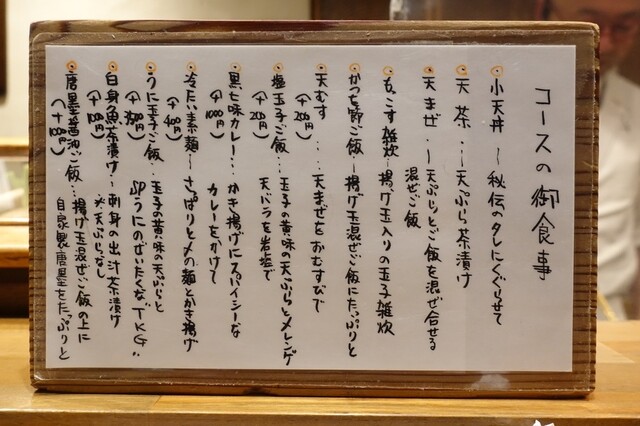 コースの御食事
小天丼 〜秘伝のタレにくぐらせて
天茶 …〜天ぷら茶漬け
天まぜ …〜天ぷらとご飯を混ぜ合せる
混ぜご飯
もこす雑炊…揚げ玉入りの玉子雑炊
かつを節ご飯…揚げ玉混ぜご飯にたっぷりと
天むす……天まぜをおむすびで
(+200円)
塩玉子ご飯…玉子の黄味の天ぷらとメレンゲ
(+200円)
天バラを岩塩で
黒七味カレー…かき揚げにスパイシーな
(+1000円)
カレーをかけて
冷たい素麺〜さっぱりと〆の麺とかき揚げ
(+400円)
うに玉子ご飯…玉子の黄味の天ぷらと
spうにのぜいたくな"TKG"
白身魚茶漬け…刺身の出汁茶漬け
(+100円)
※天ぷらなし
唐墨醤油ご飯…揚げ玉混ぜご飯の上に
自家製唐墨をたっぷりと